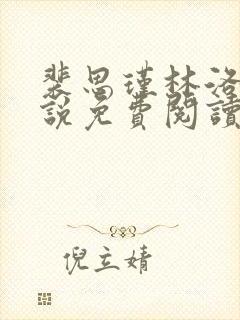 裴思瑾林洛
說免費閱讀
倪立婧